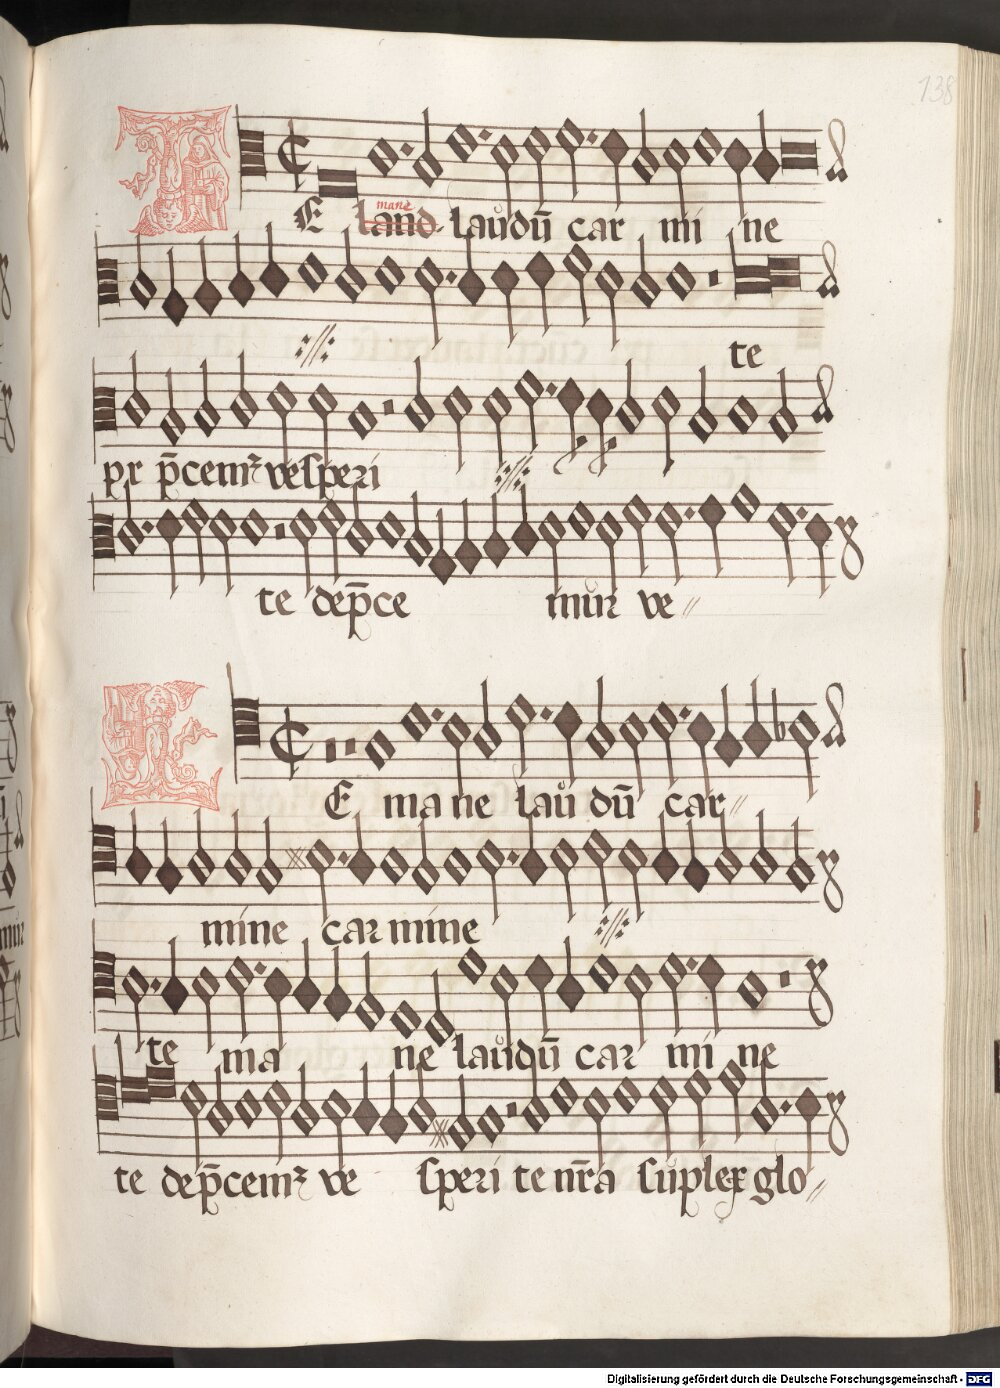 138
TE mane laud laudū car mi ne
te
pr p̄cemꝛ vesperi
te dep̄ce mur ve
TE ma ne lau dū car
mine car mine
te ma ne laudū car mi ne
te dep̄cemꝛ ve speri te nr̄a suplex glo
Digitalisierung gefördert durch die Deutsche Forschungsgemeinschaft - DFG